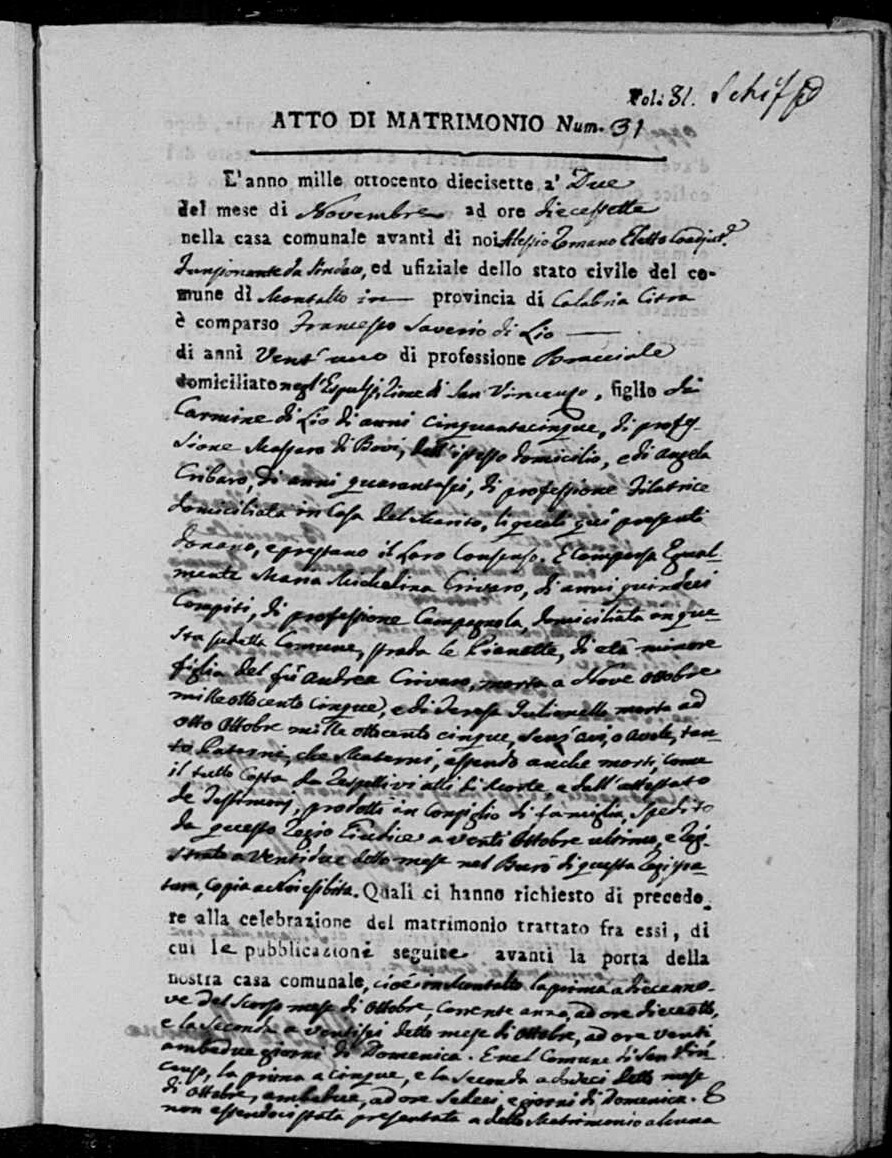 Fol. 31. Schif
ATTO DI MATRIMONIO Num. 31
L'anno mille ottocento diecisette a' Due
del mese di Novembre ad ore diecessette
nella casa comunale avanti di noi Alessio Tomano Eletto Coadjut.
Funzionante da Sindaco, ed ufiziale dello stato civile del co-
mune di Montalto in provincia di Calabria Citra
è comparso Francesco Saverio di Lio
di anni Vent'uno di professione Bracciale
domiciliato di San Vincenzo, figlio di
Carmine di Lio di anni cinquantacinque, di profes-
sione Massaro di Bovi, dell'istesso domicilio, e di Angela
Cribaro, di anni quarantasei, di professione Filatrice
domiciliata in Casa del Marito, li quali qui presenti
donano, e prestano il Loro Consenso. E Comparsa Equal-
mente Maria Michelina Crivaro, di anni quindeci
Compiti, di professione Campagnola, domiciliata in que-
sta sudetta Comune, strada le Pianette, di età minore
figlia del fù Andrea Crivaro, morto a Nove Ottobre
mille ottocento cinque, e di Teresa Julianello morta ad
otto Ottobre mille ottocento cinque, senz'avi, o avole, tan-
to Paterni, che Materni, essendo anche morti, come
il tutto Costa da Respettivi atti di Morte, e dall'attestato
de Testimonj, prodotti in Consiglio di famiglia, spedito
da questo Regio Giudice a venti Ottobre ultimo, e Regi-
strato a Ventidue detto mese nel Burò di questa Regista-
tura, Copia a Noi esibita. Quali ci hanno richiesto di precede-
re alla celebrazione del matrimonio trattato fra essi, di
cui le pubblicazioni seguite avanti la porta della
nostra casa comunale, cioè in Montalto la prima a diecenno-
ve del scorso mese di Ottobre, corrente anno, ad ore dieceotto,
e la seconda a ventisei detto mese di Ottobre, ad ore venti,
ambedue giorni di Domenica. E nel Comune di San Vin-
cenzo, la prima a cinque, e la seconda a dodeci detto mese
di Ottobre, ambedue, ad ore sedeci e giorni di Domenica. E
non essendoci stata presentata a detto Matrimonio alcuna